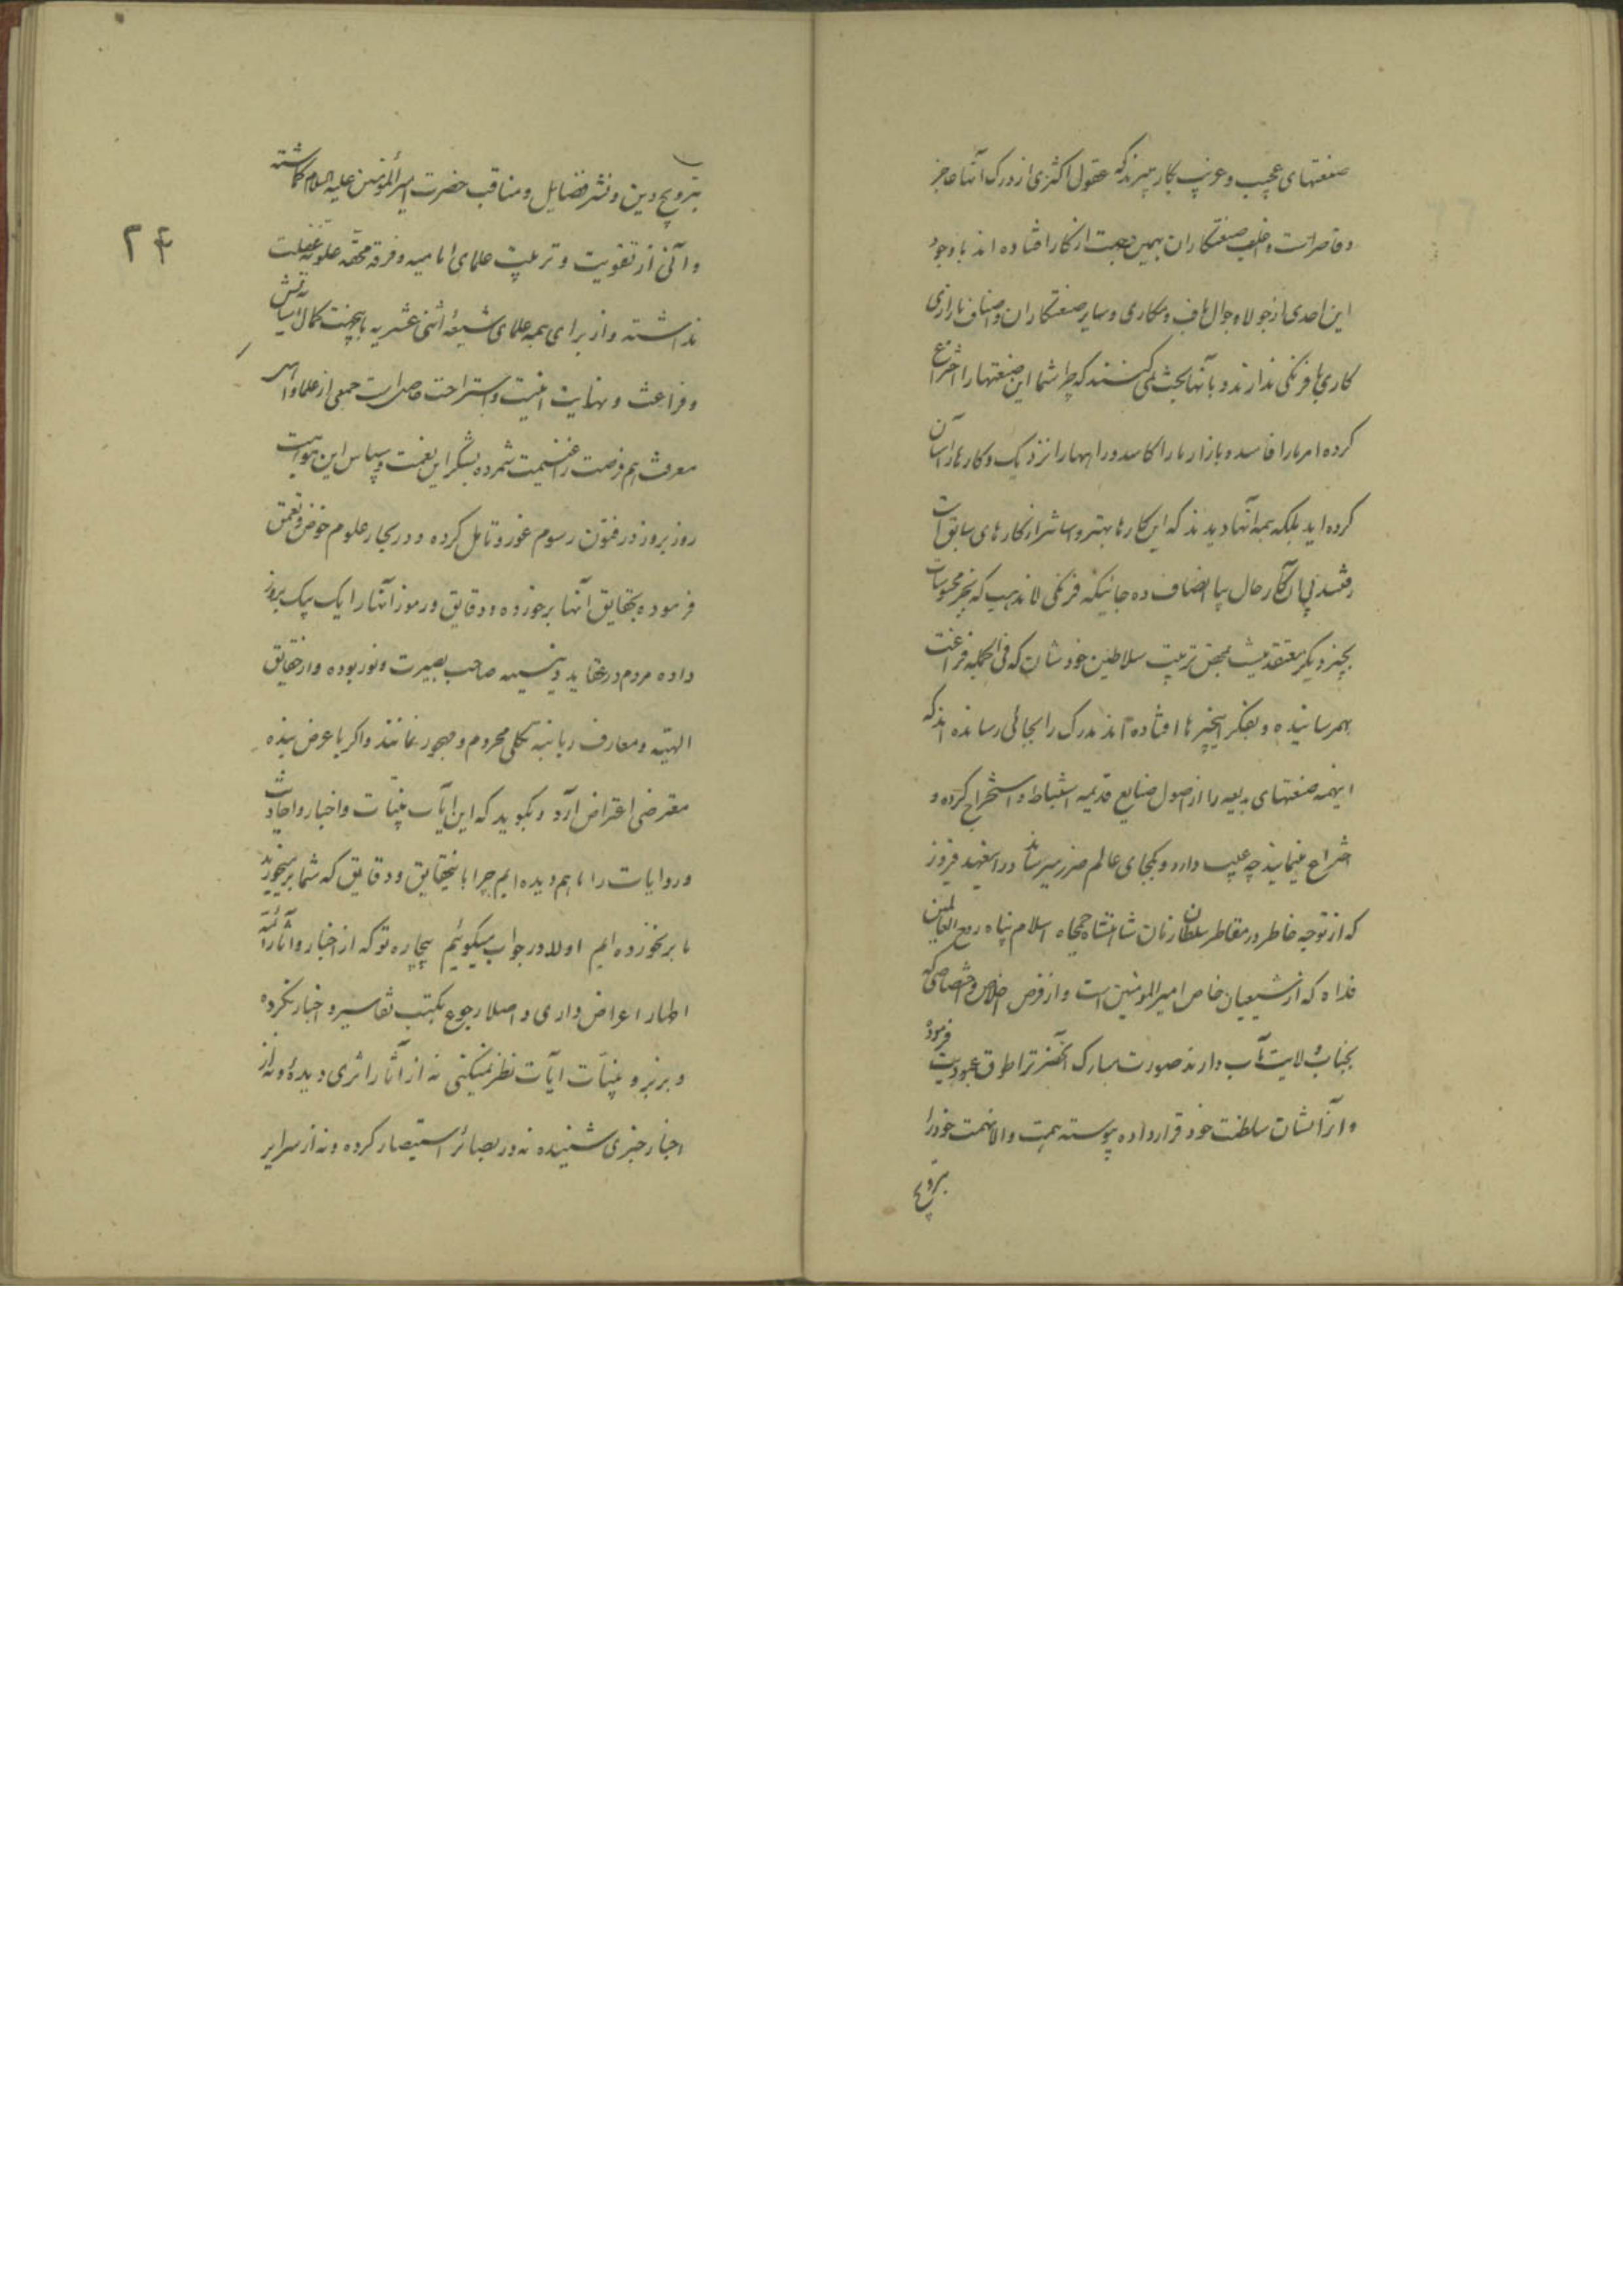 صنعتهای عجیب و غریب بکار میبرند که عقول اکثری از درک آنها عاجز
و قاصر است و اغلب صنعتکاران بهمین جهت از کار افتاده اند با وجود
این احدی از جولاه و جوال باف و مکاری و سایر صنعتکاران و اصناف بازاری
کاری با فرنگی ندارند و با آنها بحث نمی کنند که چرا شما این صنعتها را اختراع
کرده امر ما را فاسد و بازار ما را کاسد و راهها را نزدیک و کارها را آسان
کرده اید بلکه همه آنها دیدند که این کارها بهتر و آسانتر از کارهای سابق است
رفتند پی آن کار حال بیا انصاف ده جائیکه فرنگی لا مذهب که بجز محسوسات
بچیز دیگر معتقد نیست بمحض تربیت سلاطین خودشان که فی الجمله فراغت
بهمرسانیده و بفکر اینچیزها افتاده اند مدرک را بجائی رسانده اند که
اینهمه صنعتهای بدیعه را از اصول صنایع قدیمه استنباط و استخراج کرده و
اختراع مینمایند چه عیب دارد و بکجای عالم ضرر میرساند در اینعهد فیروز
که از توجه خاطر در مقاطر سلطان زمان شاهنشاه جمجاه اسلام پناه روح العالمین
فداه که از شیعیان خاص امیر المومنین است و از فرض اخلاص و اختصاصی که
بجناب ولایت مآب دارند صورت مبارک آنحضرت را طوق عبودیت فرموده
و آنرا نشان سلطنت خود قرار داده پیوسته همت والا نهمت خود را
بترویج
بترویج دین و نشر فضایل و مناقب حضرت امیر المؤمنین علیه السلام گماشته
و آنی از تقویت و تربیت علمای امامیه و فرقه محقه علویه غفلت
نداشته و از برای همه علمای شیعهٔ اثنی عشریه باینجهت کمال آسایش
و فراغت و نهایت امنیت و استراحت حاصل است جمعی از علما و اهل
معرفت هم فرصت را غنیمت شمرده بشکر این نعمت و سپاس این موهبت
روز بروز در فنون رسوم غور و تامل کرده و در بحار علوم خوض و تعمق
فرموده بحقایق آنها برخورده و دقایق و رموز آنها را یک بیک بروز
داده مردم در عقاید دینیه صاحب بصیرت و نور بوده و از حقایق
الهیه و معارف ربانیه بکلی محروم و مهجور نمانند و اگر با عرض بنده
معترضی اعتراض آرد و بگوید که این آیات بینات و اخبار و احادیث
و روایات را ما هم دیده ایم چرا باینحقایق و دقایق که شما برمیخورید
ما برنخورده ایم اولا در جواب میگوئیم بیچاره تو که از اخبار و آثار ائمه
اطهار اعراض داری و اصلا رجوع بکتب تفاسیر و اخبار نکرده
و بزبر و بینات آیات نظر نمیکنی نه از آثار اثری دیدهٔ و نه از
اخبار خبری شنیده نه در بصائر استبصار کرده و نه از سرایر